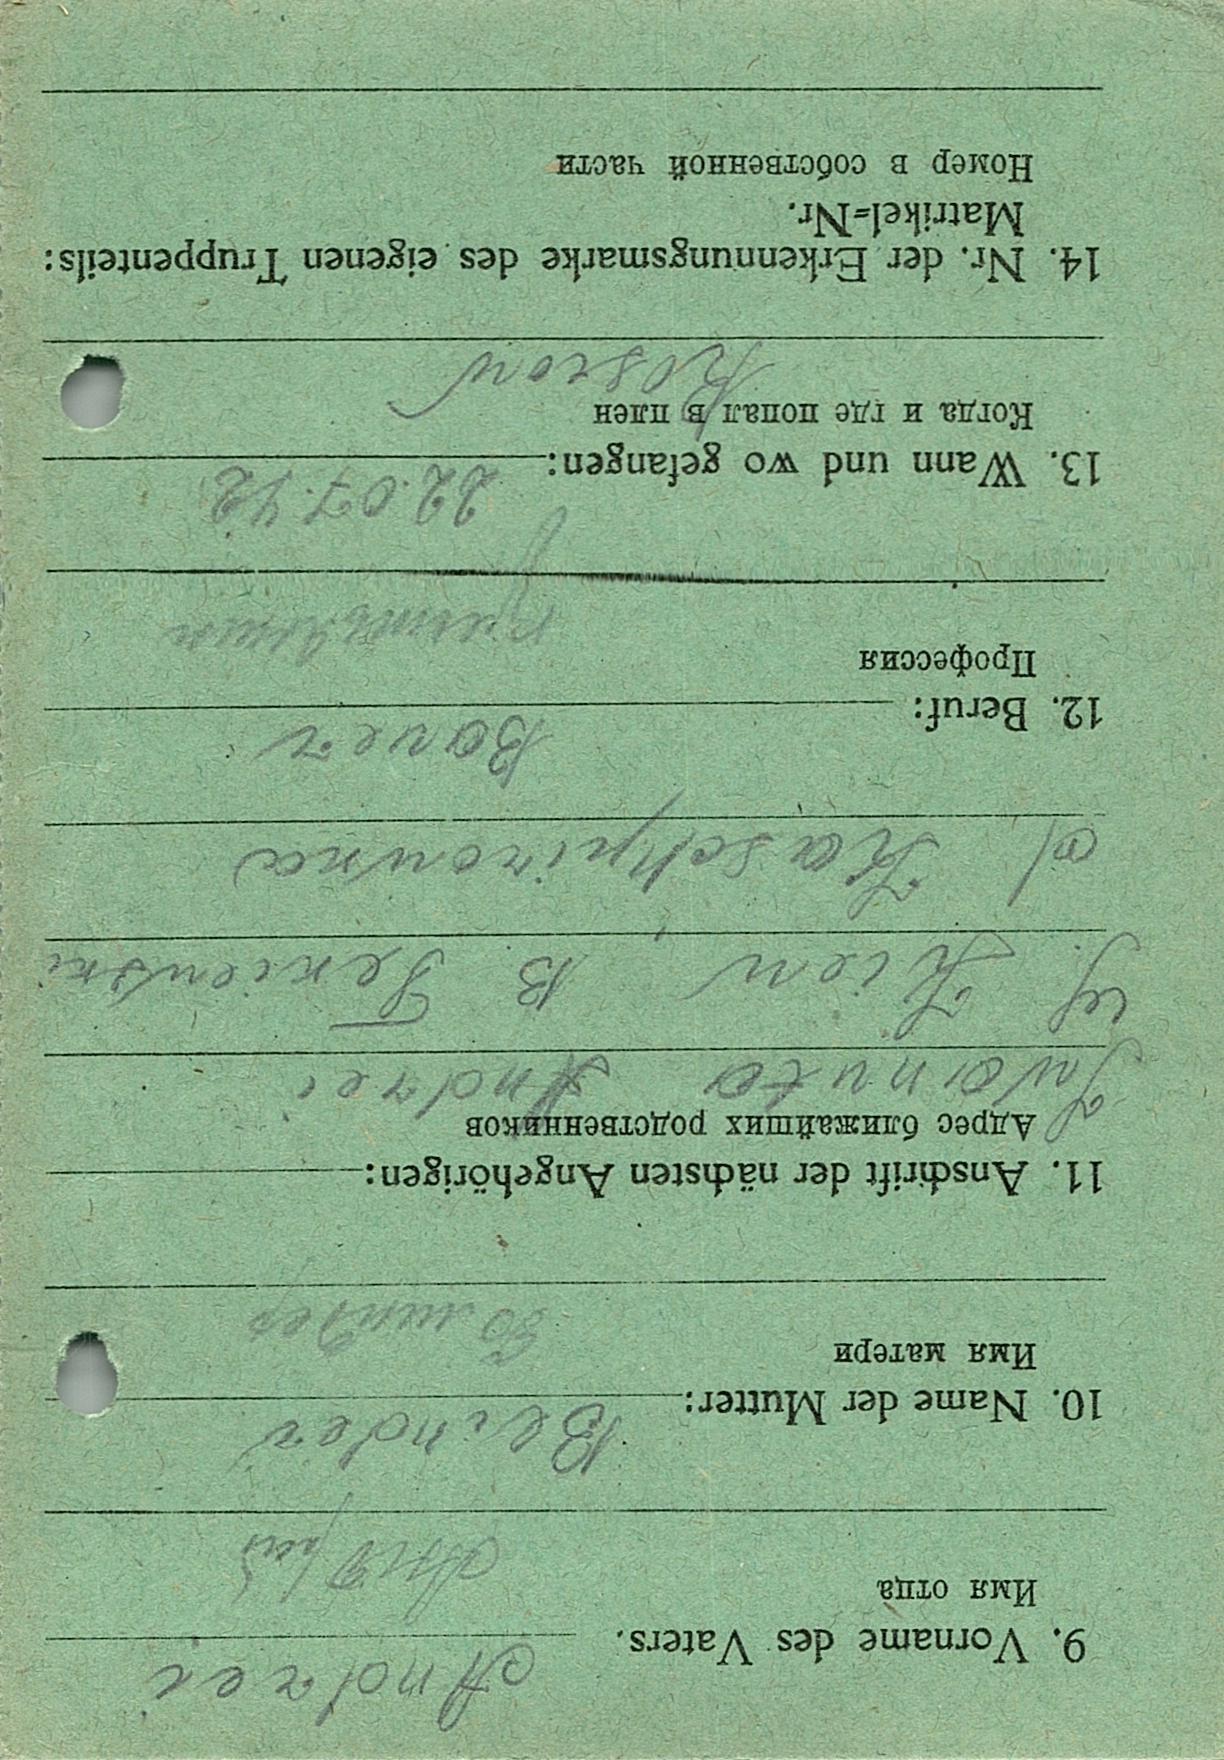 9. Vorname des Vaters. Andrei
Имя отца
Андрей
10. Name der Mutter: Beinder
Имя матери
11. Anschrift der nächsten Angehörigen:
Адрес ближайших родственников
Iwanuta Andrei
G. Kiew B.
d Kaschpirowna
12. Beruf: Bauer
Профессия
13. Wann und wo gefangen: 22.07.42
Когда и где попал в плен
Rostow
14. Nr. der Erkennungsmarke des eigenen Truppenteils:
Matrikel=Nr.
Номер в собственной части